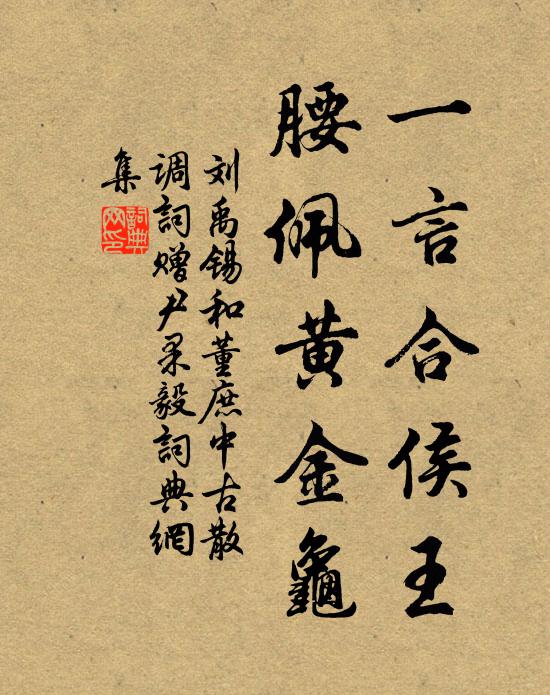 一言合侯王
腰佩黄金龜
刘禹锡和董庶中古散
调詞赠尹果毅詞典網
集
詞典
网印